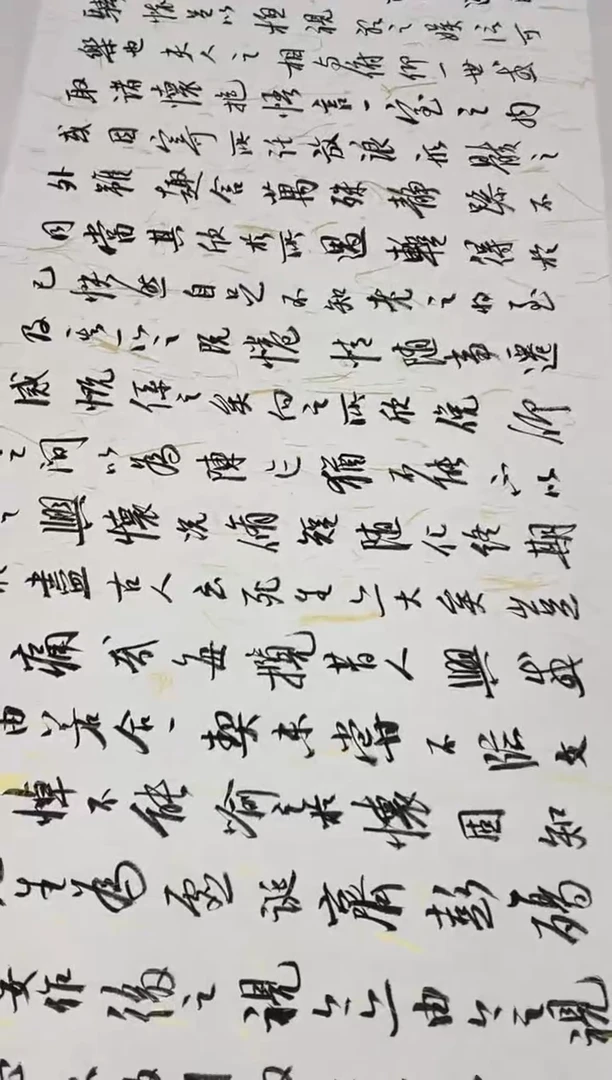 騁懷足以極視聽之娛信可
樂也夫人之相與俯仰一世或
取諸懷抱悟言一室之內
或因寄所託放浪形骸之
外雖趣舍萬殊靜躁不
同當其欣於所遇暫得於
己快然自足不知老之將至
及其所之既惓情隨事遷
感慨係之矣向之所欣俛仰
之間以為陳迹猶不能不以
之興懷況脩短隨化終期
於盡古人云死生亦大矣豈
痛哉每攬昔人興感
由若合一契未嘗不臨文
悼不能喻之於懷固知
生為虛誕齊彭殤
妄作後之視今亦由今之視